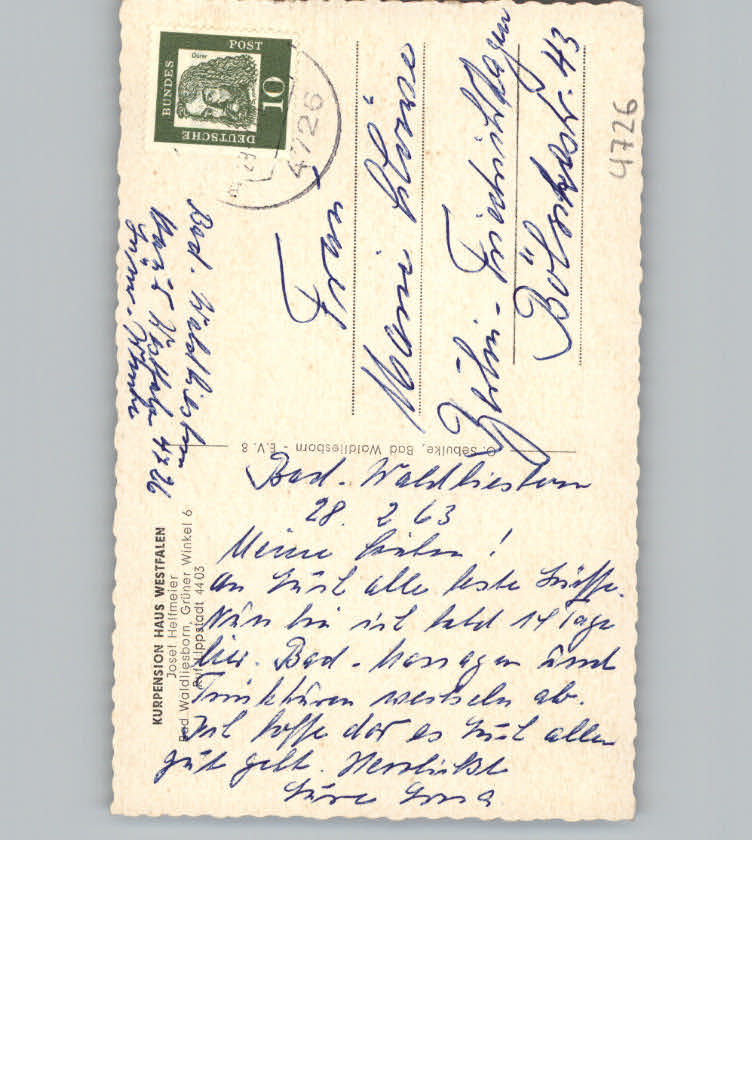 KURPENSION HAUS WESTFALEN
Josef Helfmeier
Bad Waldliesborn, Grüner Winkel 6
Ruf Lippstadt 4403
Bad-Waldliesborn
28. 2 63
Meine Lieben!
an Euch alle beste Grüße.
Nun bin ich bald 14 Tage
hier. Bad-Massagen und
Trinkkuren wechseln ab.
Ich hoffe das es Euch allen
gut geht. Herzlichst
Eure
O. Sebulke, Bad Waldliesborn - E.V. 8
DEUTSCHE
BUNDES
POST
Dürer
10
4726
Bad. Waldliesborn
Haus Westfalen 4726
Frau
Marie
Berlin-Friedrichshagen
Bölschestr. 43
4726